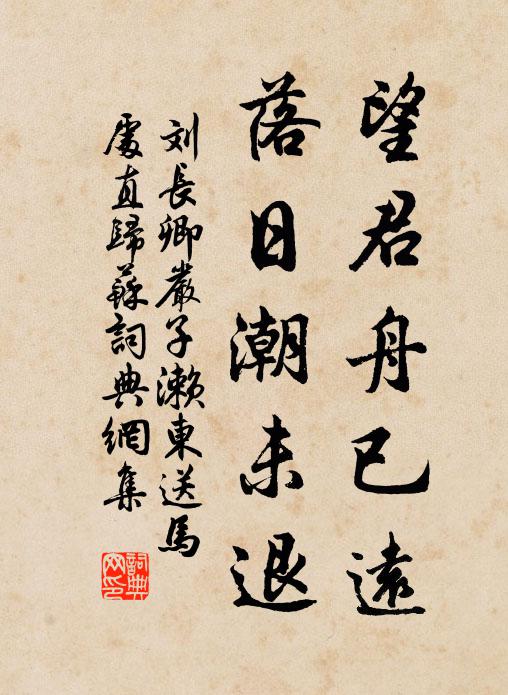 望君舟已遠
落日潮未退
刘長卿嚴子瀨東送馬
處直歸蘇詞典網集
詞典网印